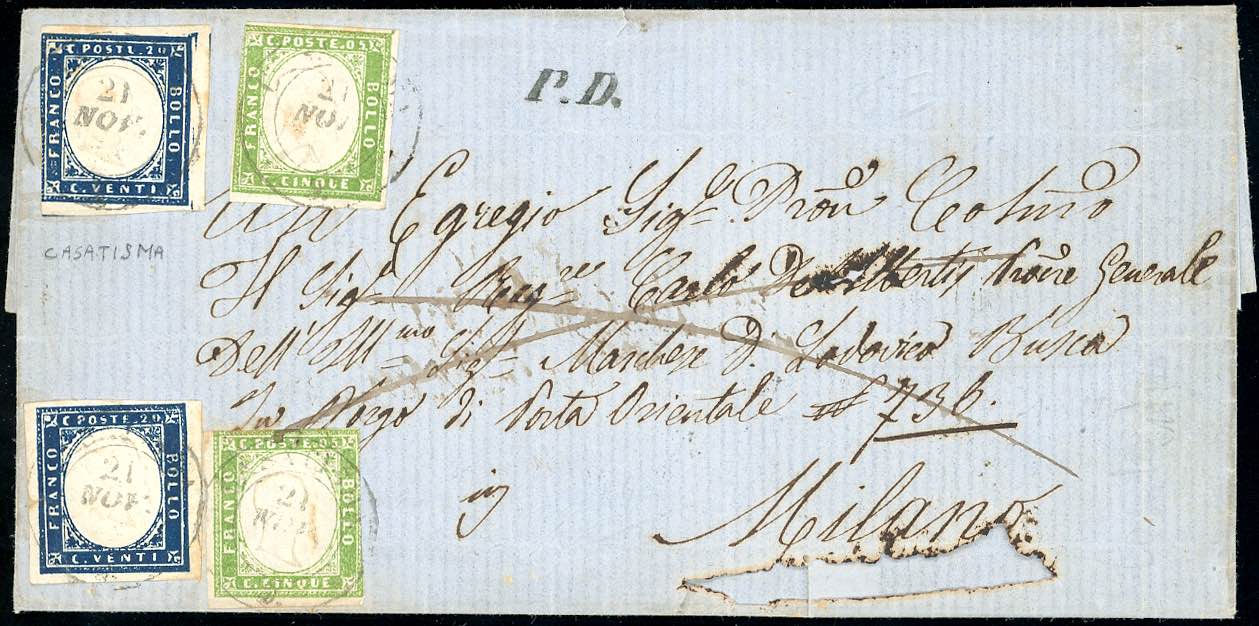 C. POSTE. 20
FRANCO
BOLLO
C. VENTI
21
NOV.
C. POSTE. 05
FRANCO
BOLLO
C. CINQUE
21
NOV.
P.D.
CASATISMA
Egregio Sig.r Prõn Colmõ
Il Sig.r Rag.re Carlo Generale
Dell' Ill.mo Sig.r Marchese D. Lodovico Busca
In Borgo di Porta Orientale N 736.
in
Milano
C. POSTE. 20
FRANCO
BOLLO
C. VENTI
21
NOV.
C. POSTE. 05
FRANCO
BOLLO
C. CINQUE
21
NOV.